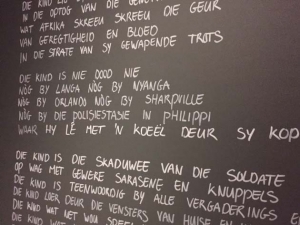 DIE KIND
IN DIE OPTOG VAN DIE
WAT AFRIKA SKREEU SKREEU DIE GEUR
VAN GEREGTIGHEID EN BLOED
IN DIE STRATE VAN SY GEWAPENDE TROTS
DIE KIND IS NIE DOOD NIE
NÒG BY LANGA NÒG BY NYANGA
NÒG BY ORLANDO NÒG BY SHARPVILLE
NÒG BY DIE POLISIESTASIE IN PHILIPPI
WAAR HY LÊ MET 'N KOEËL DEUR SY KOP
DIE KIND IS DIE SKADUWEE VAN DIE SOLDATE
OP WAG MET GEWERE SARASENE EN KNUPPELS
DIE KIND IS TEENWOORDIG BY ALLE VERGADERINGS
DIE KIND LOER DEUR DIE VENSTERS VAN HUISE EN
DIE KIND WAT NET WOU
DIE KIND WAT